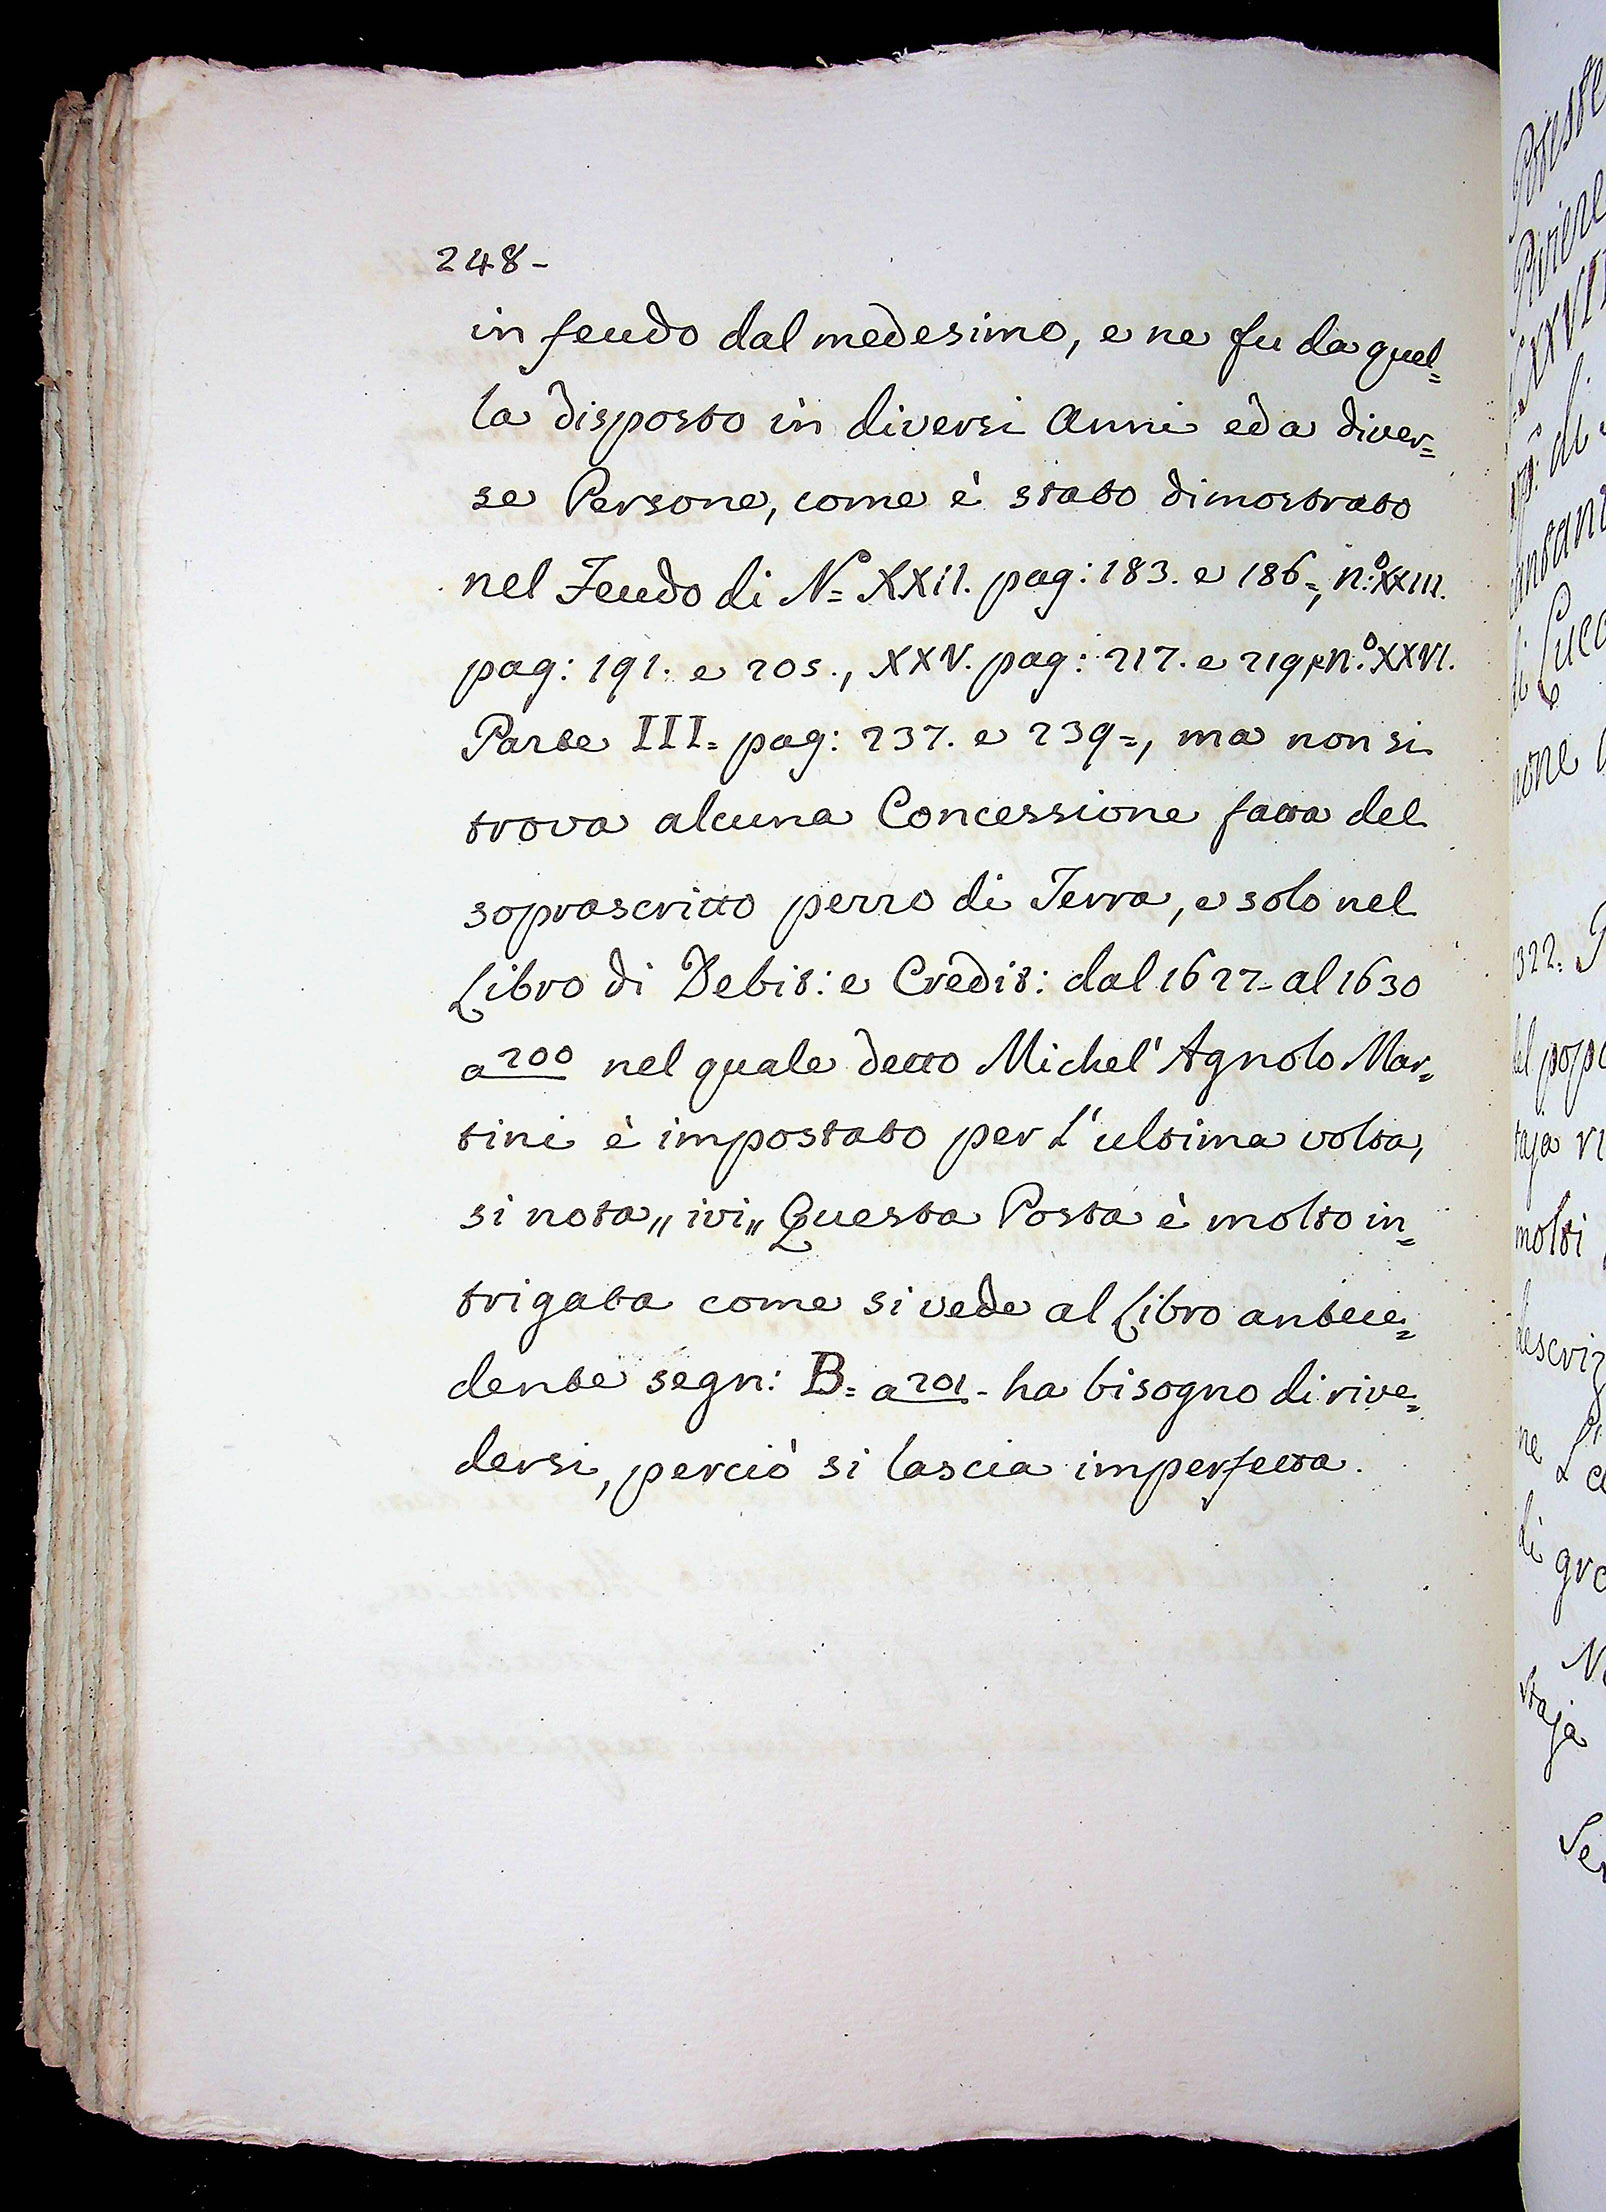 248-
in feudo dal medesimo, e ne fu da quel=
la disposto in diversi Anni ed a diver=
se Persone, come è stato dimostrato
nel Feudo di N.º XXII. pag: 183. e 186=, n.º XXIII.
pag: 191. e 205., XXV. pag: 217. e 219, e n.º XXVI.
Parte III= pag: 237. e 239=, ma non si
trova alcuna Concessione fatta del
soprascritto pezzo di Terra, e solo nel
Libro di Debit: e Credit: dal 1627= al 1630
a 200 nel quale detto Michel' Agnolo Mar=
tini è impostato per l'ultima volta,
si nota,, ivi,, Questa Posta è molto in=
trigata come si vede al Libro antece=
dente segn: B= a 201- ha bisogno di rive=
dersi, perciò si lascia imperfetta.
XXVI
di
di Lucc
none
1322.
del popo
staja ri
molti
descriz
ne L'
di gra
staja